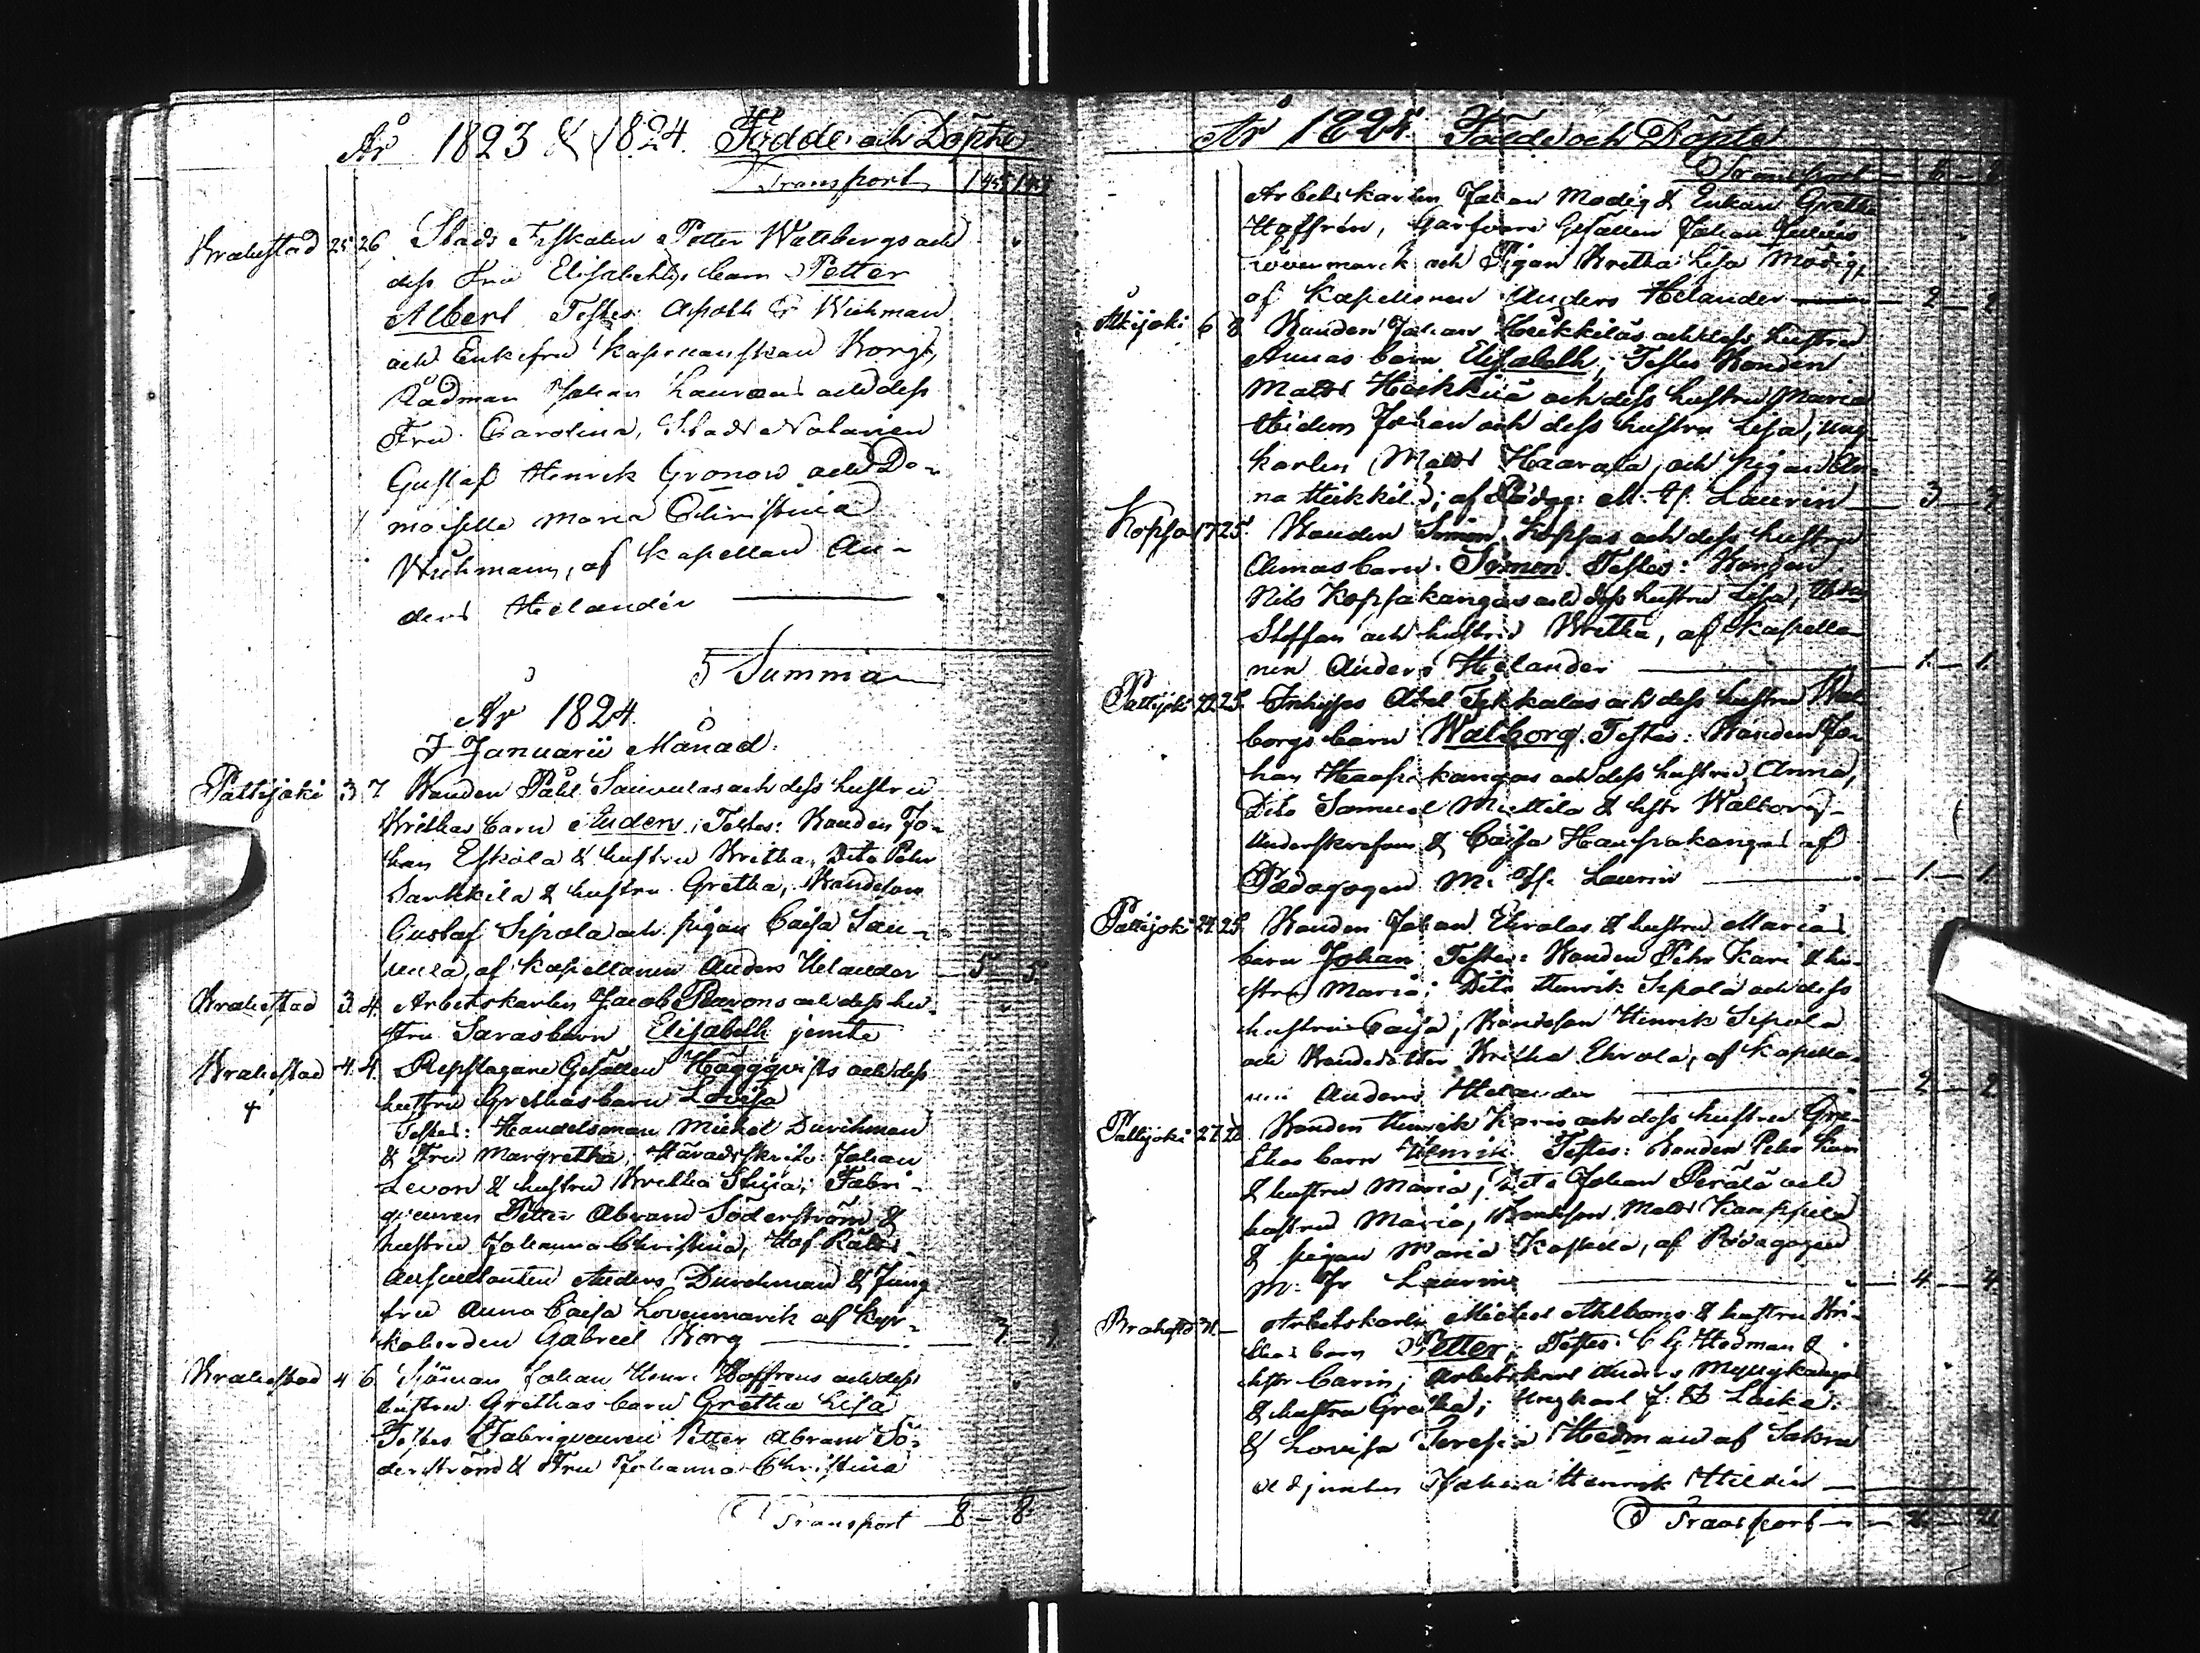 År 1823 & 1824. Födde och Döpte
Transport
Brahestad 25 26 Stads Fiskalen Petter Wallbergs och
dess Fru Elisabeths barn Petter
Albert Testes: Apoth Wichman
och Enkefru Kapellanskan Borg,
Rådman Johan Laurœus och dess
Fru Carolina, Stads Notarien
Gustaf Henrik Gronow och De-
moiselle Maria Christina
Wichmann, af Kapellan An-
ders Helander
Summa
År 1824.
I Januarii Månad.
Pattijoki 3 7 Bonden Påhl Saurulas och dess hustru
Brithas barn Anders; Testes: Bonden Jo-
han Eskola & hustru Britha, Dito Pehr
Sarkkila & hustru Gretha, Bondeson
Gustaf Sipola och pigan Caisa Sau-
rula, af Kapellanen Anders Helander 5 5
Brahestad 3 4 Arbetskarlen Jacob och dess hu-
stru Saras barn Elisabeth jemte
Brahestad 4 4 Repslagare Gesällen Häggqvists och dess
hustru Grethas barn Lovisa
Testes: Handelsman Michel Durchman
& Fru Margretha, Häradsskrifv: Johan
Levon & hustru Britha Stina; Fabri-
queuren Petter Abram Söderström &
hustru Johanna Christina, Hof Rätts
Auscultanten Anders Durchman & Jung
fru Anna Caisa Lovenmarck af Kyr-
koherden Gabriel Borg
Brahestad 4 6 Sjöman Johan Henr. Hoffrens och dess
hustru Grethas barn Gretha Lisa
Testes Fabriqueuren Petter Abram Sö-
derström & Fru Johanna Christina
Transport 8 8
År 1824. Födde och Döpte
Transport
Arbetskarlen Johan Modig & Enkan Gretha
Hoffrén, Garfvare Gesällen Johan Julius
Lövenmarck och Pigan Britha Lisa Modig,
af Kapellanen Anders Helander 2 2
6 8 Bonden Johan Heikkiläs och dess hustru
Annas barn Elisabeth; Testes Bonden
Matts Heikkilä och dess hustru Maria
Johan och dess hustru Lisa, ung-
karlen Matts Haarala, och pigan An-
na Heikkilä; af Pædag: M. H. Laurin 3
Kopsa 17 25. Bonden Simon Kopsas och dess hustru
Annas barn Simon Testes: Bonden
Nils Kopsakangas och dess hustru Lisa,
Steffan och hustru Britha, af Kapella-
nen Anders Helander 1 1
Pattijoki 22 25. Inhyses Abel Tokkalas och dess hustru Wal
borgs barn Walborg. Testes: Bonden Jo-
han Haapakangas och dess hustru Anna,
Dito Samuel Mattila & hustr Walborg
& Caisa Haapakangas af
Pædagogen M. H. Laurin 1 1
Pattijoki 24 25. Bonden Johan Ehrolas & hustru Marias
barn Johan Testes: Bonden Pehr Kari & hu-
stru Maria; Dito Henrik Sipola och dess
hustru Caisa, Bondeson Henrik Sipola
och Bondedotter Britha Ehrola, af Kapella-
nen Anders Helander 2 2
Pattijoki 27 Bonden Henrik Karis och dess hustru Gre-
thas barn Henrik Testes: Bonden Pehr Kari
& hustru Maria, Dito Johan Perälä och
hustru Maria, Bondeson Matts Kamppila
& pigan Maria Koskela, af Pædagogen
M. H. Laurin 4 4
Brahestd 31 Arbetskarlen Michel Ahlboms & hustru Bri-
thas barn Petter; Testes: C G Hedman &
hustr Carin; Arbetskarl Anders Myllykangas
& hustru Gretha; Ungkarl J. Laika
& Lovisa Teresia Hedman af Sakra
Johan Henrik Hildén
Transport